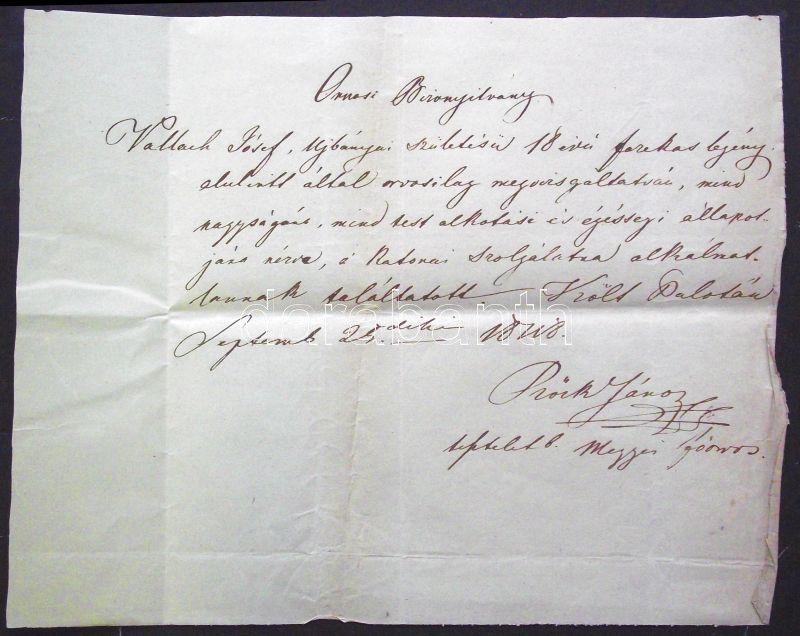 Orvosi Bizonyitvány
Vallach Jósef, Ujbányai születésü 18 évü farekas legény,
alulirtt által orvosilag megvizsgáltatván, mind
nagyságára, mind test alkotási és égésségi állapot-
jára nézve, a Katonai szolgálatra alkalmat-
lannak találtatott. Költ Palotán
darabanth
Septemb 25. dikén 1848.
János
Megyei főorvos.